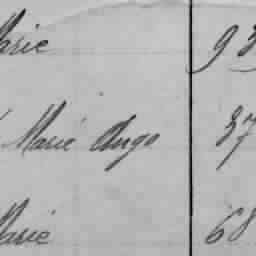 Marie 93
Marie Ange 37
Marie 68